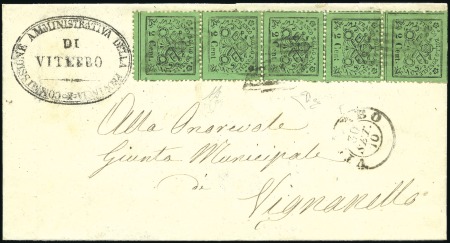 COMMISSIONE AMMINISTRATIVA DELLA PROVINCIA
DI
VITERBO
2 Cent. 2 Cent. 2 Cent. 2 Cent. 2 Cent.
Alla Onorevole
Giunta Municipale
di
Vignanello
30
SET.
10